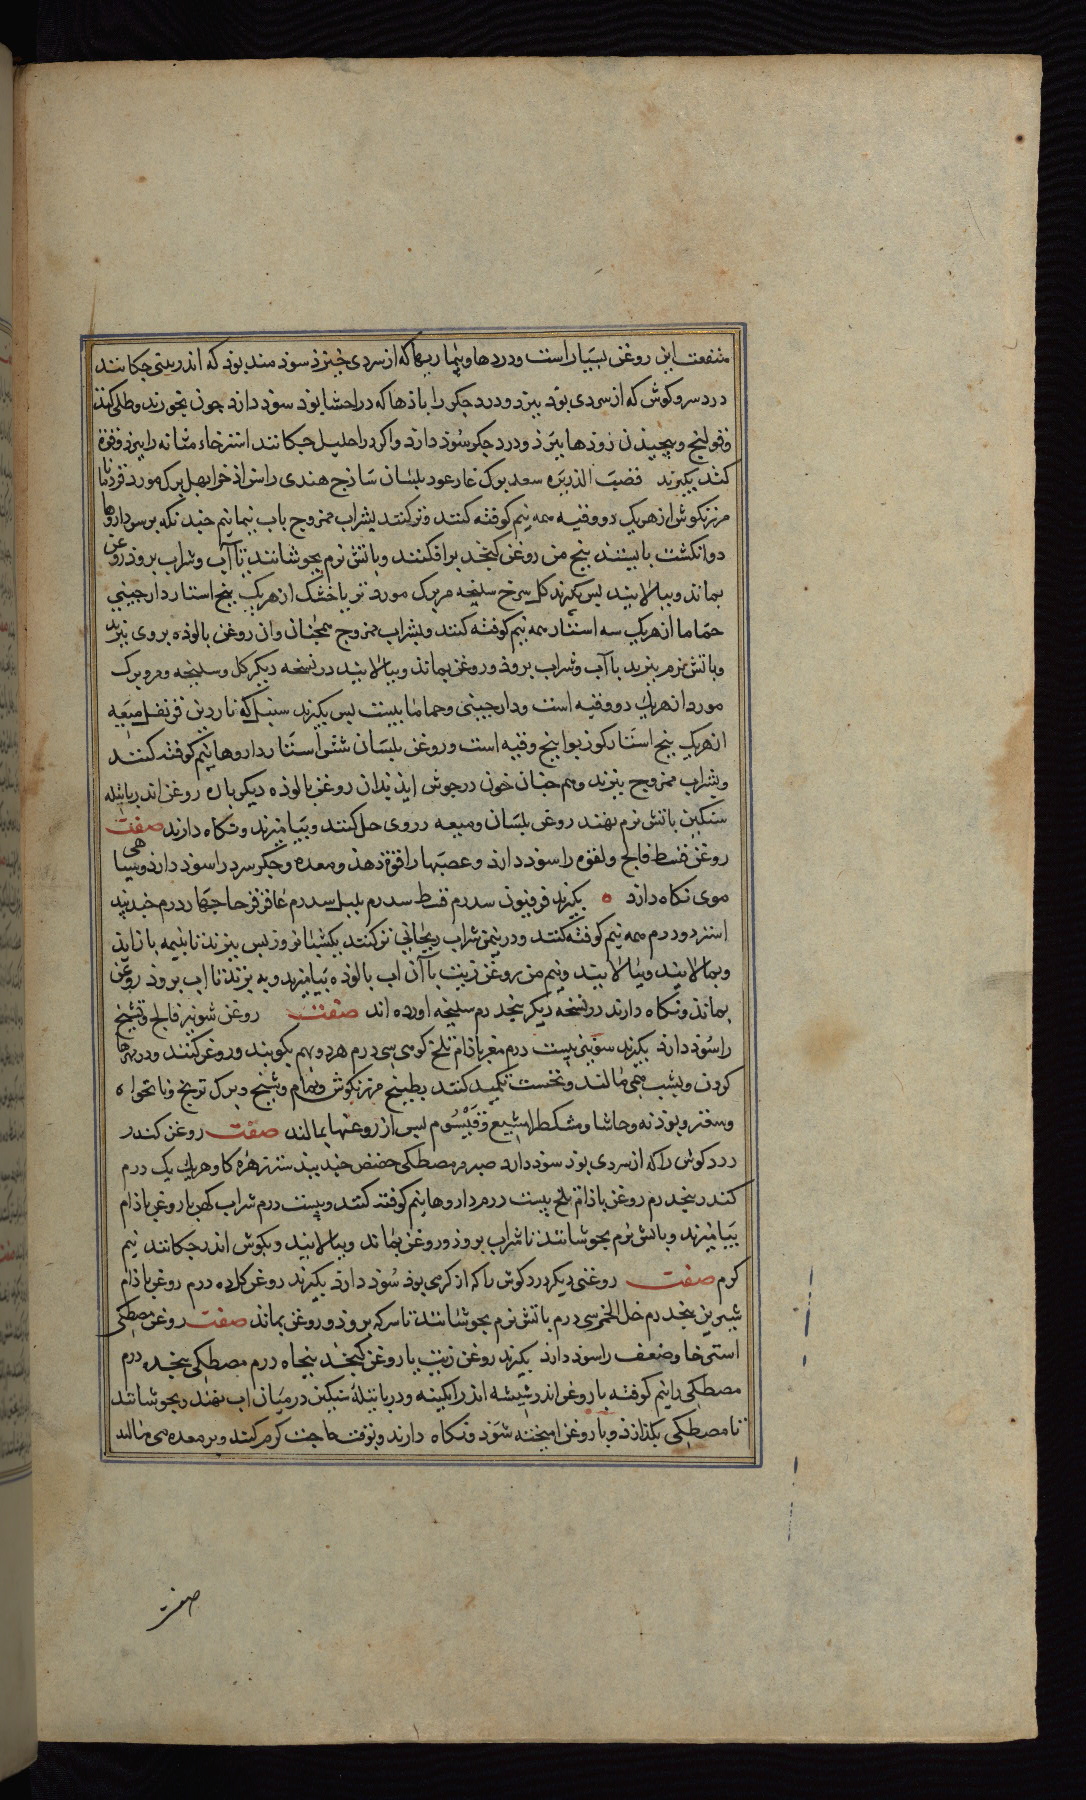 منفعت این روغن بسیار است و دردها و بیماریها که از سردی خیزذ سوذ مند بوذ که اندر بینی جکانند
درد سر و کوش که از سردی بوذ ببرد و درد جکر را باذها که در احشا بوذ سوذ دارد جون بخورند و طلی کنند
و قولنج و بیجیدن روذها ببرذ و درد جکر سوذ دارد و اکر در احلیل جکانند استرخاء مثانه را ببرذ و
کند بکیرند قصب الذریره سعد برک غار عود بلسان ساذج هندی راسن اذخر ابهل برک مورد قردمانا
مرزنکوش از هریک دو وقیه همه نیم کوفته کنند و تر کنند بشراب ممزوج باب بیمانیم جندانکه بر سر داروها
دو انکشت بایستند بنج من روغن کنجد برافکنند و باتش نرم بجوشانند تا آب و شراب بروذ روغن
بماند و بپالایند بس بکیرند کل سرخ سلیخه مر برک مورد تر یا خشک از هریک بنج استار دارجینی
حماما از هریک سه استار همه نیم کوفته کنند و بشراب ممزوج همجنان وان روغن بالوذه بروی نهند
و باتش نرم ببزند تا آب و شراب بروذ و روغن بماند و بپالایند در نسخه دیکر کل و سلیخه و مر و برک
مورد از هریک دو وقیه است و دارجینی و حماما بیست بس بکیرند سنبل که ناردین قرنفل میعه
از هریک بنج استار کوزبوا بنج وقیه است و روغن بلسان شش استار داروها نیم کوفته کنند
و بشراب ممزوج ببزند و هم جنان جون در جوش ایذ بذان روغن بالوذه دیکر باره روغن اندر باتیله
سنکین باتش نرم نهند روغن بلسان و میعه در وی حل کنند و بیامیزند و نکاه دارند صفت
روغن قسط فالج و لقوه را سوذ دارد و عصبها را قوة دهذ و معده و جکر سرد را سوذ دارد و سیاهی
موی نکاه دارد ه بکیرند فرفیون سه درم قسط سه درم بلبل سه درم عاقرقرحا جهار درم جند بید
استر دو درم همه نیم کوفته کنند و در نیم من شراب ریحانی تر کنند یکشبانروز بس ببزند تا بنیمه بازاید
و بمالایند و بپالایند و نیم من روغن زیت با آن اب بالوذه بیامیزند و به بزند تا اب بروذ روغن
بماند و نکاه دارند در نسخه دیکر بنجدرم سلیخه اورده اند صفت روغن شونیز فالج و تشنج
را سوذ دارد بکیرند شونیز بیست درم مغز باذام تلخ کوهی سی درم هر دو بهم بکوبند و روغن کنند و در مهرها
کردن و بشت همی مالند و نخست تکمید کنند بطبیخ مرزنکوش و نمام و شیح و برک ترنج و نانخواه
و سعتر و بوذنه و حاشا و مشکطرامشیع و قیسوم بس از روغنها بمالند صفت روغن کندر
درد کوش را که از سردی بوذ سوذ دارد صبر مر مصطکی حضض جند بیدستر زهره کاو هریک یک درم
کندر بنجدرم روغن باذام تلخ بیست درم داروها نیم کوفته کنند و بیست درم شراب کهن با روغن باذام
بیامیزند و باتش نرم بجوشانند تا شراب بروذ و روغن بماند و بپالایند و بکوش اندر جکانند نیم
کرم صفت روغنی دیکر درد کوش را که از کرمی بوذ سوذ دارد بکیرند روغن کل ده درم روغن باذام
شیرین بنجدرم خل الخمر سی درم باتش نرم بجوشانند تا سرکه بروذ و روغن بماند صفت روغن مصطکی
استرخا و ضعف را سوذ دارد بکیرند روغن زیت یا روغن کنجد بنجاه درم مصطکی بنجده درم
مصطکی را نیم کوفته با روغن اندر شیشه اندر ابکینه و در باتیلهٔ سنکین در میان اب نهند و بجوشانند
تا مصطکی بکذازذ و با روغن امیخته شوذ و نکاه دارند و بوقت حاجت کرم کنند و بر معده می مالند
صفت